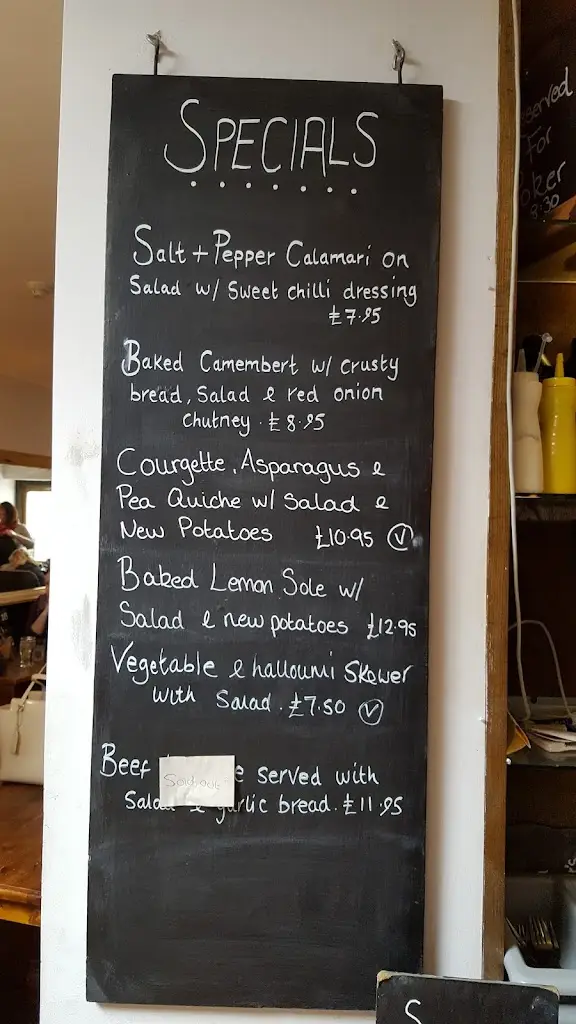 SPECIALS
Salt + Pepper Calamari on
Salad w/ Sweet chilli dressing
£7.95
Baked Camembert w/ crusty
bread, Salad & red onion
Chutney. £8.95
Courgette, Asparagus &
Pea Quiche w/ Salad &
New Potatoes £10.95 Ⓥ
Baked Lemon Sole w/
Salad & new potatoes £12.95
Vegetable & halloumi Skewer
with Salad. £7.50 Ⓥ
Beef served with
Sold out
Salad & garlic bread. £11.95
For
8:30
S